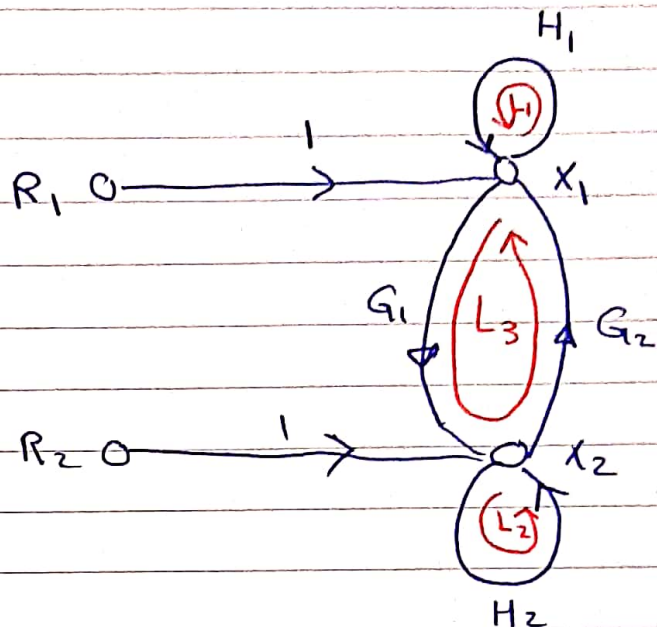 H1
L1
1
R1 X1
G1 L3 G2
1
R2 X2
L2
H2